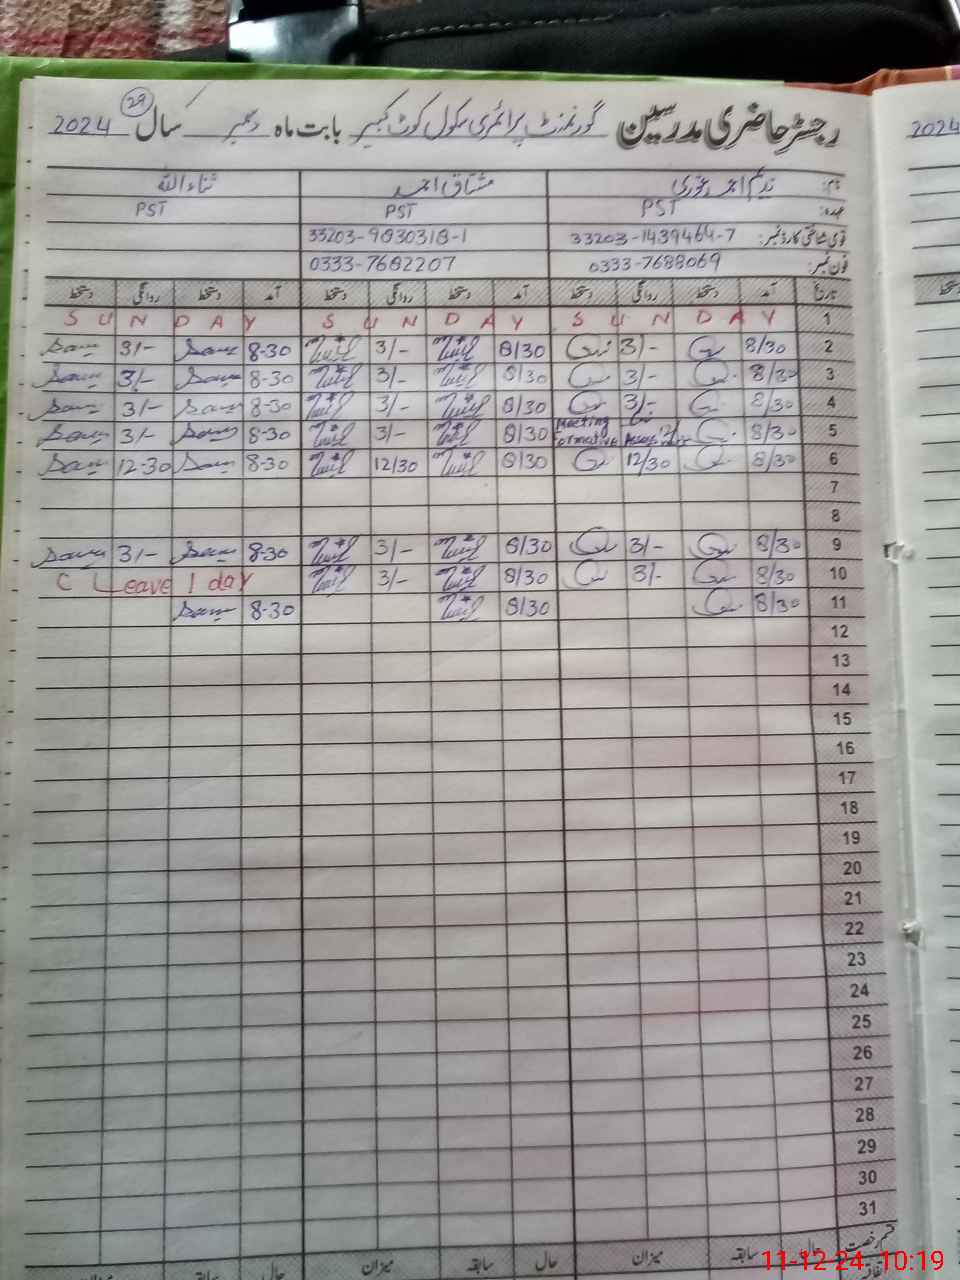 رجسٹر حاضری مدرسین گورنمنٹ پرائمری سکول کوٹ کبیر بابت ماہ دسمبر سال 2024 29
2024
نام: ندیم احمد غوری مشتاق احمد ثناء اللہ
عہدہ: PST PST PST
قومی شناختی کارڈ نمبر: 33203-1439464-7 33203-9830318-1
فون نمبر: 0333-7688069 0333-7682207
تاریخ آمد دستخط روانگی دستخط آمد دستخط روانگی دستخط آمد دستخط روانگی دستخط
1 SUNDAY SUNDAY SUNDAY
2 8/30 3/- 8/30 3/- 8-30 3/-
3 8/30 3/- 8/30 3/- 8-30 3/-
4 8/30 3/- 8/30 3/- 8-30 3/-
5 8/30 Meeting Formative 8/30 3/- 8-30 3/-
6 8/30 12/30 8/30 12/30 8-30 12-30
7
8
9 8/30 3/- 8/30 3/- 8-30 3/-
10 8/30 3/- 8/30 3/- C Leave 1 day
11 8/30 8/30 8-30
12
13
14
15
16
17
18
19
20
21
22
23
24
25
26
27
28
29
30
31
قسم رخصت حال سابقہ میزان حال سابقہ میزان حال سابقہ میزان
11-12-24 10:19